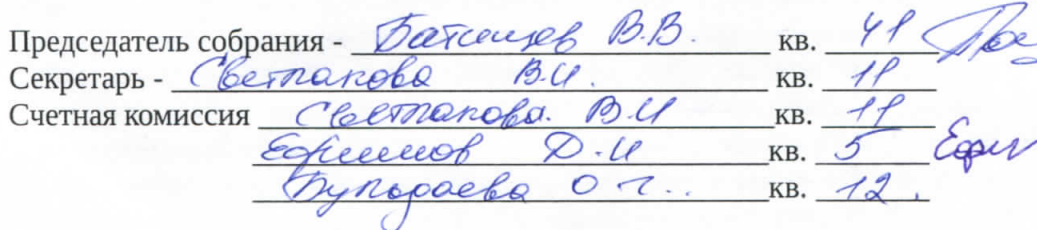 Председатель собрания - Батищев В.В. кв. 41
Секретарь - Светлакова В.И. кв. 11
Счетная комиссия Светлакова. В.И кв. 11
Ефимов Д.И кв. 5
кв. 12.